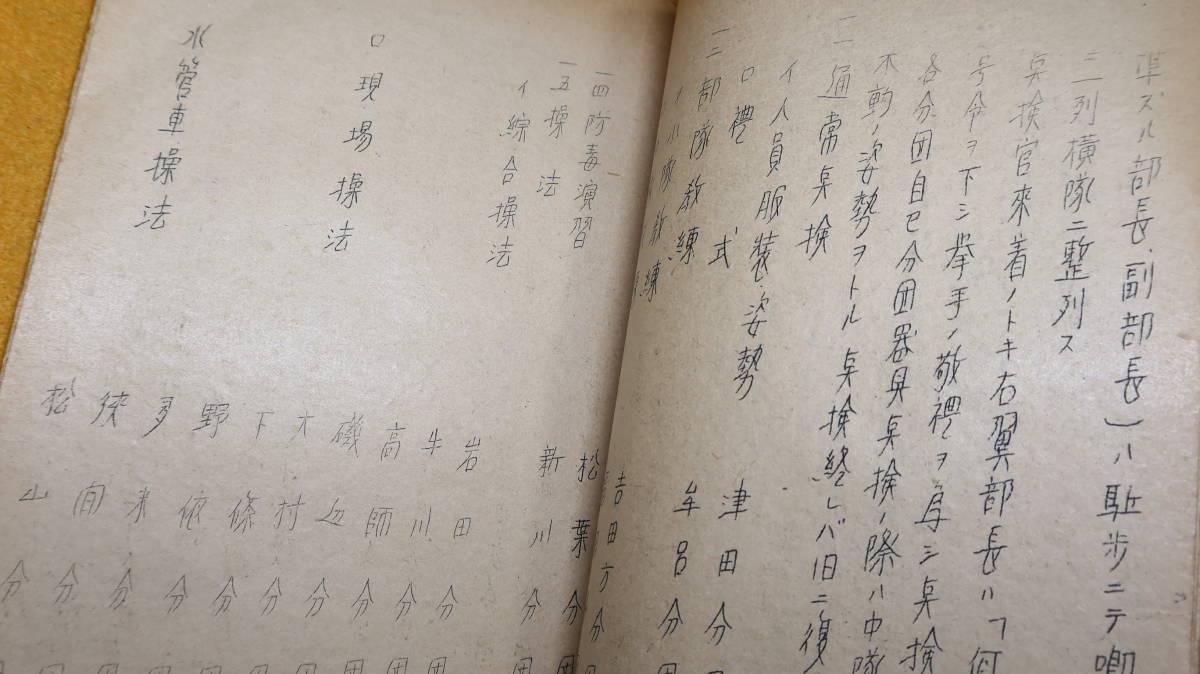 準ズル部長、副部長）ハ駈歩ニテ
二列横隊ニ整列ス
点検官來着ノトキ右翼部長ハ「何
号令ヲ下シ挙手ノ敬禮ヲ為シ点検
各分団自己分団器具点検ノ際ハ中隊
不動ノ姿勢ヲトル点検終レバ旧ニ復
二通常点検
イ人員服装姿勢
ロ禮式 津田分団
牟呂分団
一三部隊教練
イ小隊教練
吉田方分団
一四防毒演習 松葉分団
一五操法 新川分団
イ綜合操法
岩田分団
牛川分団
高師分団
ロ現場操法 磯辺分団
大村分団
下條分団
野依分団
多米分
水管車操法 分
松山分